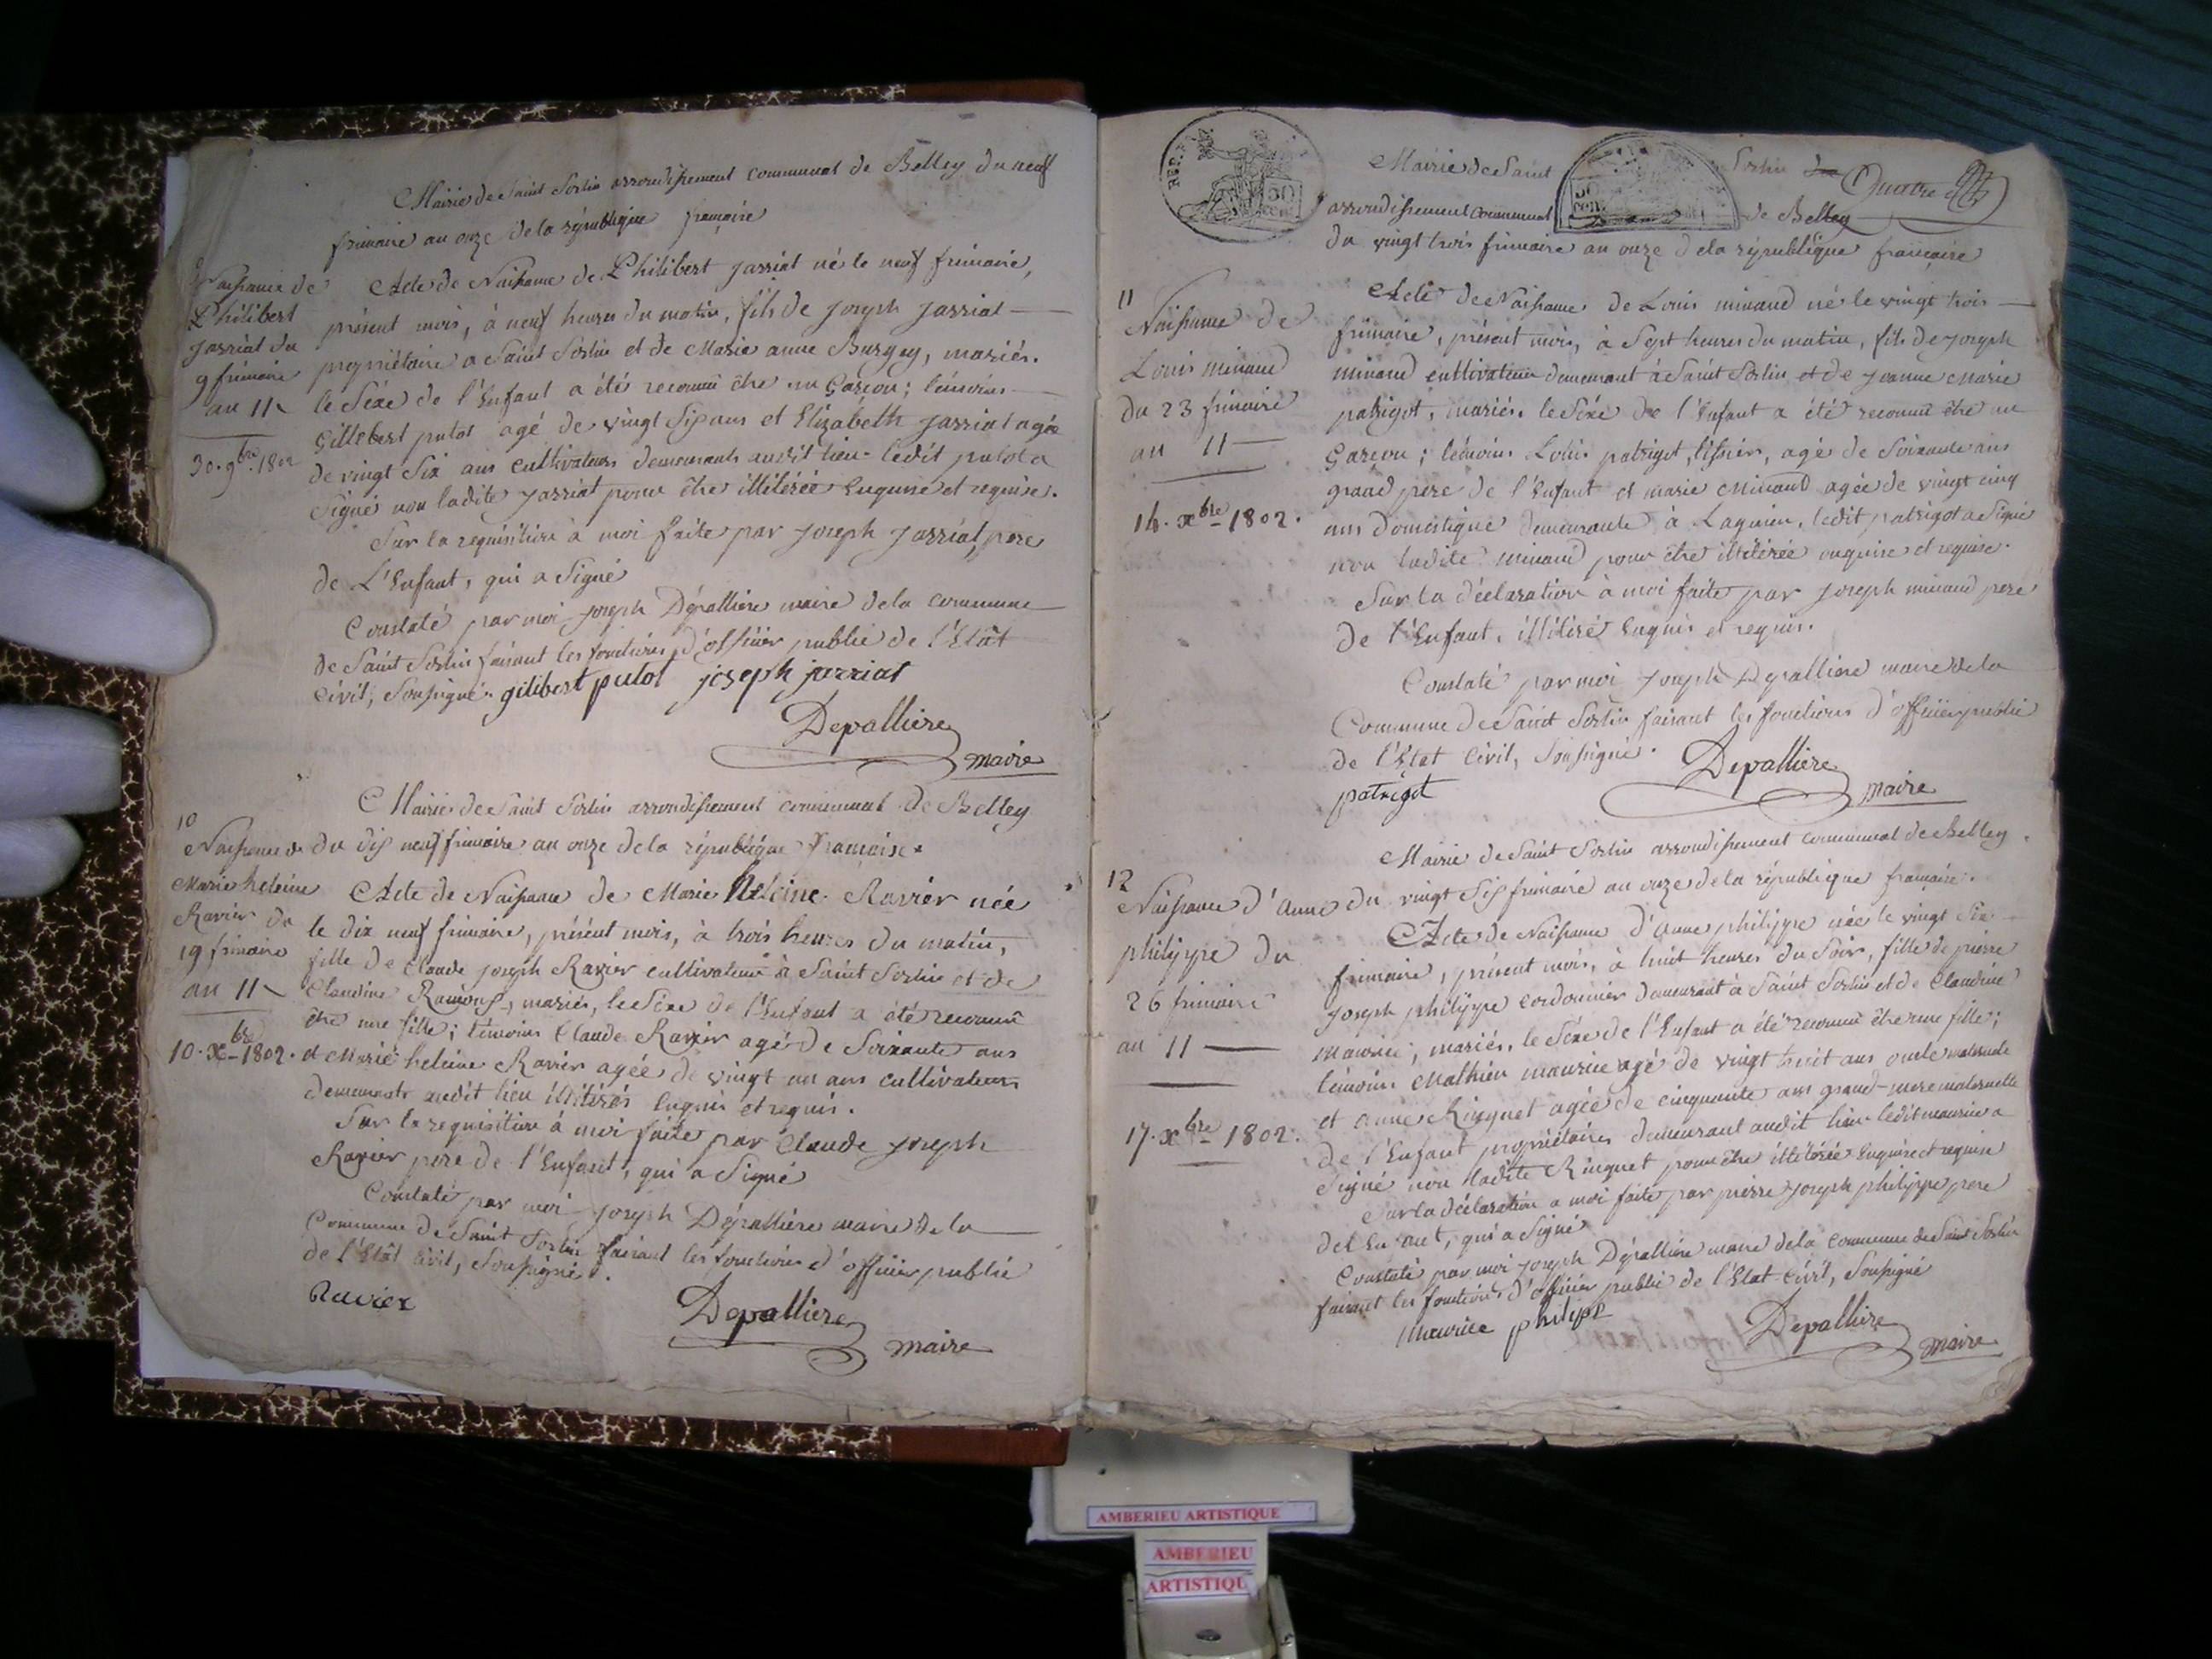 Mairie de Saint Sorlin arrondissement communal de Belley du neuf
frimaire an onze de la république françoise
9
Naissance de
Philibert
Jarriat du
9 frimaire
an 11
30. 9bre. 1802
Acte de Naissance de Philibert Jarriat né le neuf frimaire,
présent mois, à neuf heures du matin, fils de joseph Jarriat
propriétaire a Saint Sorlin et de Marie anne Burgey, mariés.
le Séxe de l'Enfant a été reconnû être un Garçon; témoins
Gillebert putot agé de vingt Six ans et Elizabeth Jarriat agée
de vingt Six ans cultivateurs demeurants audit lieu. ledit putot a
Signé non ladite Jarriat pour être illitérée Enquise et requise.
Sur la requisition à moi faite par joseph Jarriat, pere
de L'Enfant, qui a Signé
Constaté par moi joseph Dépallière maire de la commune
de Saint Sorlin faisant les fonctions d'officier public de l'Etât
Civil, Soussigné. gilibert putot joseph jarriat
Depalliere
maire
Mairie de Saint Sorlin arrondissement communal de Belley
du dix neuf frimaire an onze de la république françoise.
10
Naissance de
Marie heleine
Ravier du
19 frimaire
an 11
10. Xbre 1802.
Acte de Naissance de Marie Heleine Ravier née
le dix neuf frimaire, présent mois, à trois heures du matin,
fille de Claude joseph Ravier cultivateur à Saint Sorlin et de
Claudine, mariés, le Séxe de l'Enfant a été reconnû
être une fille; témoins Claude Ravier agé de Soixante ans
et Marie heleine Ravier agée de vingt un ans cultivateurs
demeurants audit lieu illitérés Enquis et requis.
Sur la requisition à moi faite par Claude joseph
Ravier pere de l'Enfant, qui a Signé
Constaté par moi joseph Dépallière maire de la
Commune de Saint Sorlin faisant les fonctions d'officier public
de l'Etât civil, Soussigné.
Ravier
Depalliere
maire
REP.
50
cen
50
cen
Mairie de Saint Sorlin Quatre
arrondissement communal de Belley
du vingt trois frimaire an onze de la république françoise
11
Naissance de
Louis minand
du 23 frimaire
an 11
14. Xbre 1802.
Acte de Naissance de Louis minand né le vingt trois
frimaire, présent mois, à Sept heures du matin, fils de joseph
minand cultivateur demeurant à Saint Sorlin et de jeanne Marie
patrigot, mariés. le Séxe de l'Enfant a été reconnû être un
Garçon; témoins Louis patrigot, tissier, agé de Soixante ans
grand pere de l'Enfant et marie Minand agée de vingt cinq
ans domestique demeurante à Lagnieu, ledit patrigot a Signé
non ladite minand pour être illitérée enquise et requise.
Sur la déclaration à moi faite par joseph minand pere
de l'Enfant, illitéré Enquis et requis.
Constaté par moi joseph Dépallière maire de la
Commune de Saint Sorlin faisant les fonctions d'officier public
de l'Etat Civil, Soussigné.
patrigot
Depalliere
maire
Mairie de Saint Sorlin arrondissement communal de Belley
du vingt Six frimaire an onze de la république françoise.
12
Naissance d'anne
philippe du
26 frimaire
an 11
17. Xbre 1802.
Acte de Naissance d'anne philippe née le vingt Six
frimaire, présent mois, à huit heures du Soir, fille de pierre
joseph philippe cordonnier demeurant à Saint Sorlin et de Claudine
maurice, mariés. le Séxe de l'Enfant a été reconnû être une fille;
témoins Mathieu maurice agé de vingt huit ans oncle maternele
et anne Ringuet agée de cinquante ans grand-mere maternelle
de l'Enfant propriétaires demeurant audit lieu ledit maurice a
Signé non ladite Ringuet pour être illitérée Enquise et requise
Sur la déclaration a moi faite par pierre joseph philippe pere
de l'Enfant, qui a Signé
Constaté par moi joseph Dépallière maire de la Commune de Saint Sorlin
faisant les fonctions d'officier public de l'Etat Civil, Soussigné
maurice philipe
Depalliere
maire
AMBERIEU ARTISTIQUE
AMBERIEU
ARTISTIQU